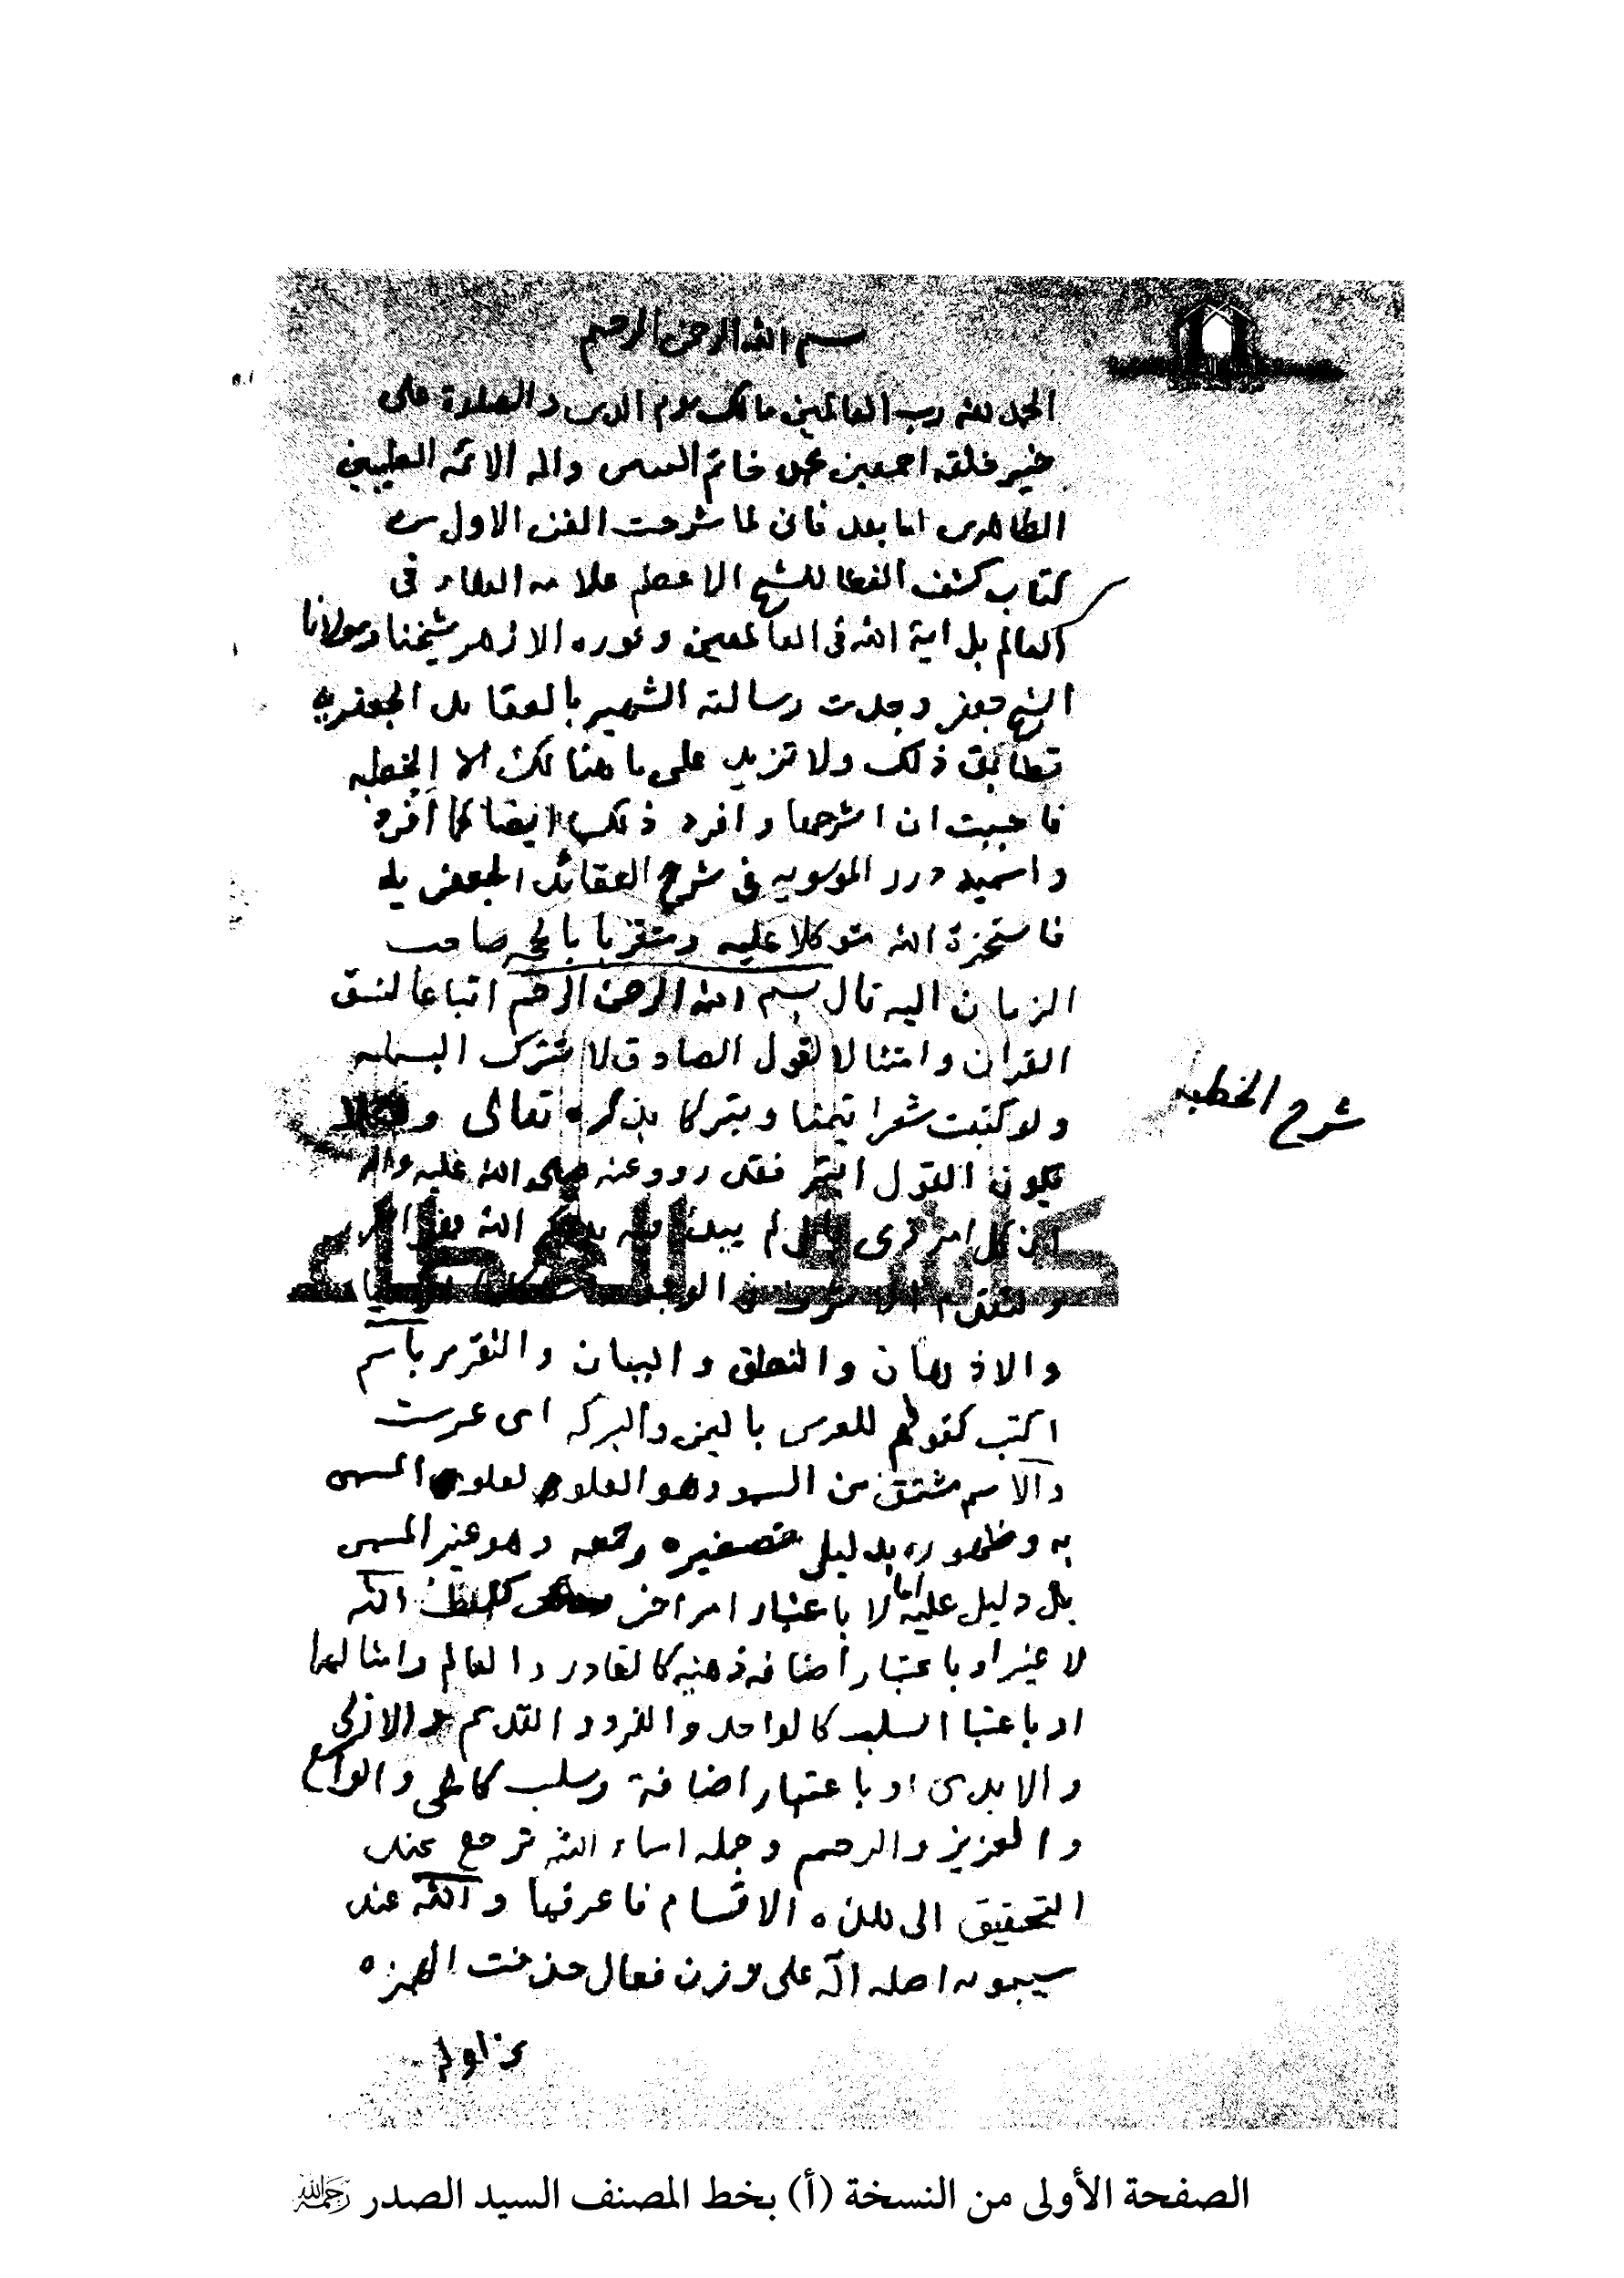 بسم الله الرحمن الرحيم
الحمد لله رب العالمين مالك يوم الدين والصلاة على
خير خلقه اجمعين محمد خاتم النبيين واله الائمة الطيبين
الطاهرين اما بعد فاني لما شرحت الفن الاول من
كتاب كشف الغطا للشيخ الاعظم علامه العلماء في
العالم بل اية الله في العالمين ونوره الازهر شيخنا ومولانا
الشيخ جعفر وجدت رسالته الشهير بالعقايد الجعفريه
تطابق ذلك ولا تزيد على ما هنالك الا الخطبه
فاحببت ان اشرحها وافرد ذلك ايضا كما افرد
واسميه درر الموسويه في شرح العقائد الجعفريه
فاستخرة الله متوكلا عليه ومتقربا بالحجه صاحب
الزمان اليه قال بسم الله الرحمن الرحيم اتباعا لنسق
القران وامتثالا لقول الصادق لا تترك البسمله
ولو كتبت شعرا تيمنا وتبركا بذكره تعالى
شرح الخطبه
يكون القول ابتر فقد روو عنه صلى الله عليه واله
ان كل امر ذى بال لم يبدأ فيه بذكر الله فهو ابتر
كاشف الغطاء
والاذهان والنطق والبيان والتقرير باسم
اكتب كقولهم للعرس باليمن والبركه اى عرست
والاسم مشتق من السمو وهو العلو لعلو المسمى
به وظهوره بدليل تصغيره وجمعه وهو غير المسمى
بل دليل عليه اما لا باعتبار امر اخر كلفظ الله
لا غير او باعتبار اضافه ذهنيه كالقادر والعالم وامثالهما
او باعتبا السلب كالواحد والفرد و القديم والازلى
والابدى او باعتبار اضافة وسلب كالحى والواسع
والعزيز والرحيم وجمله اسماء الله ترجع عند
التحقيق الى هذه الاقسام فاعرفها والله عند
سيبويه اصله اله على وزن فعال حذفت الهمزه
الصفحة الأولى من النسخة (أ) بخط المصنف السيد الصدر رحمه الله